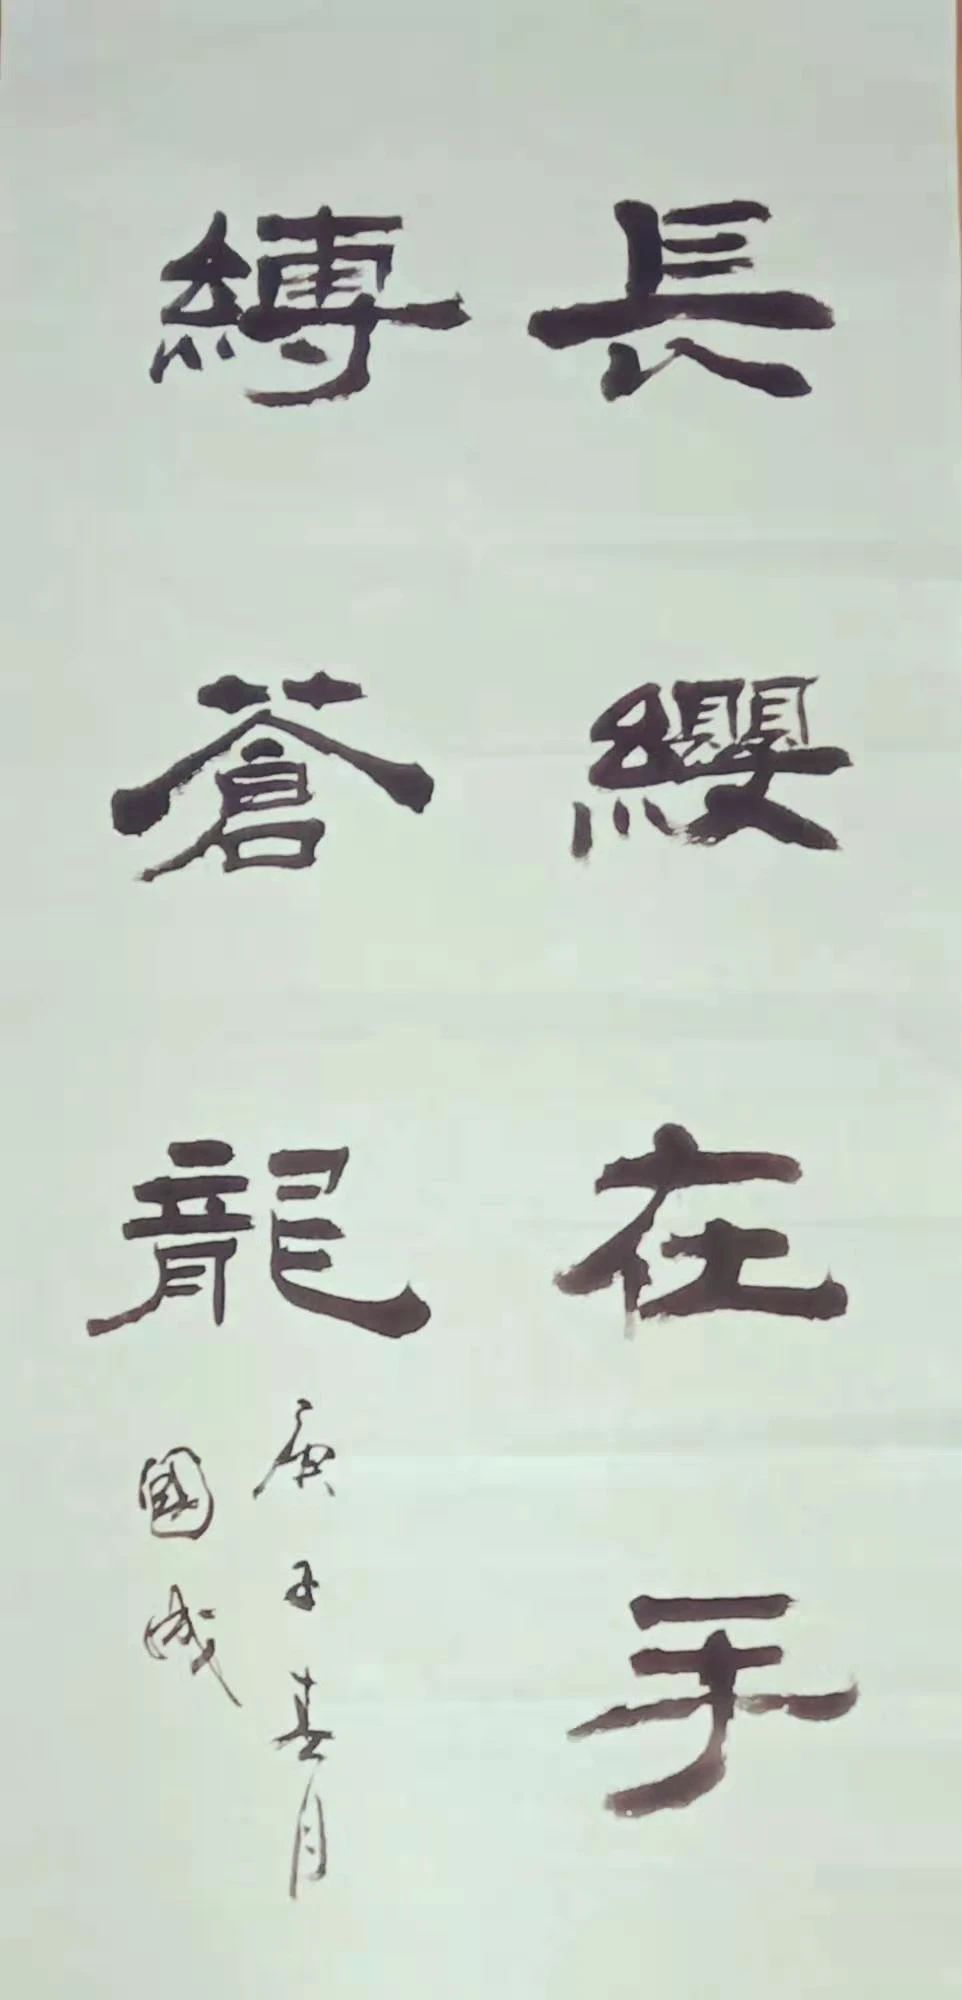 長纓在手
縛蒼龍
庚子春月
國成